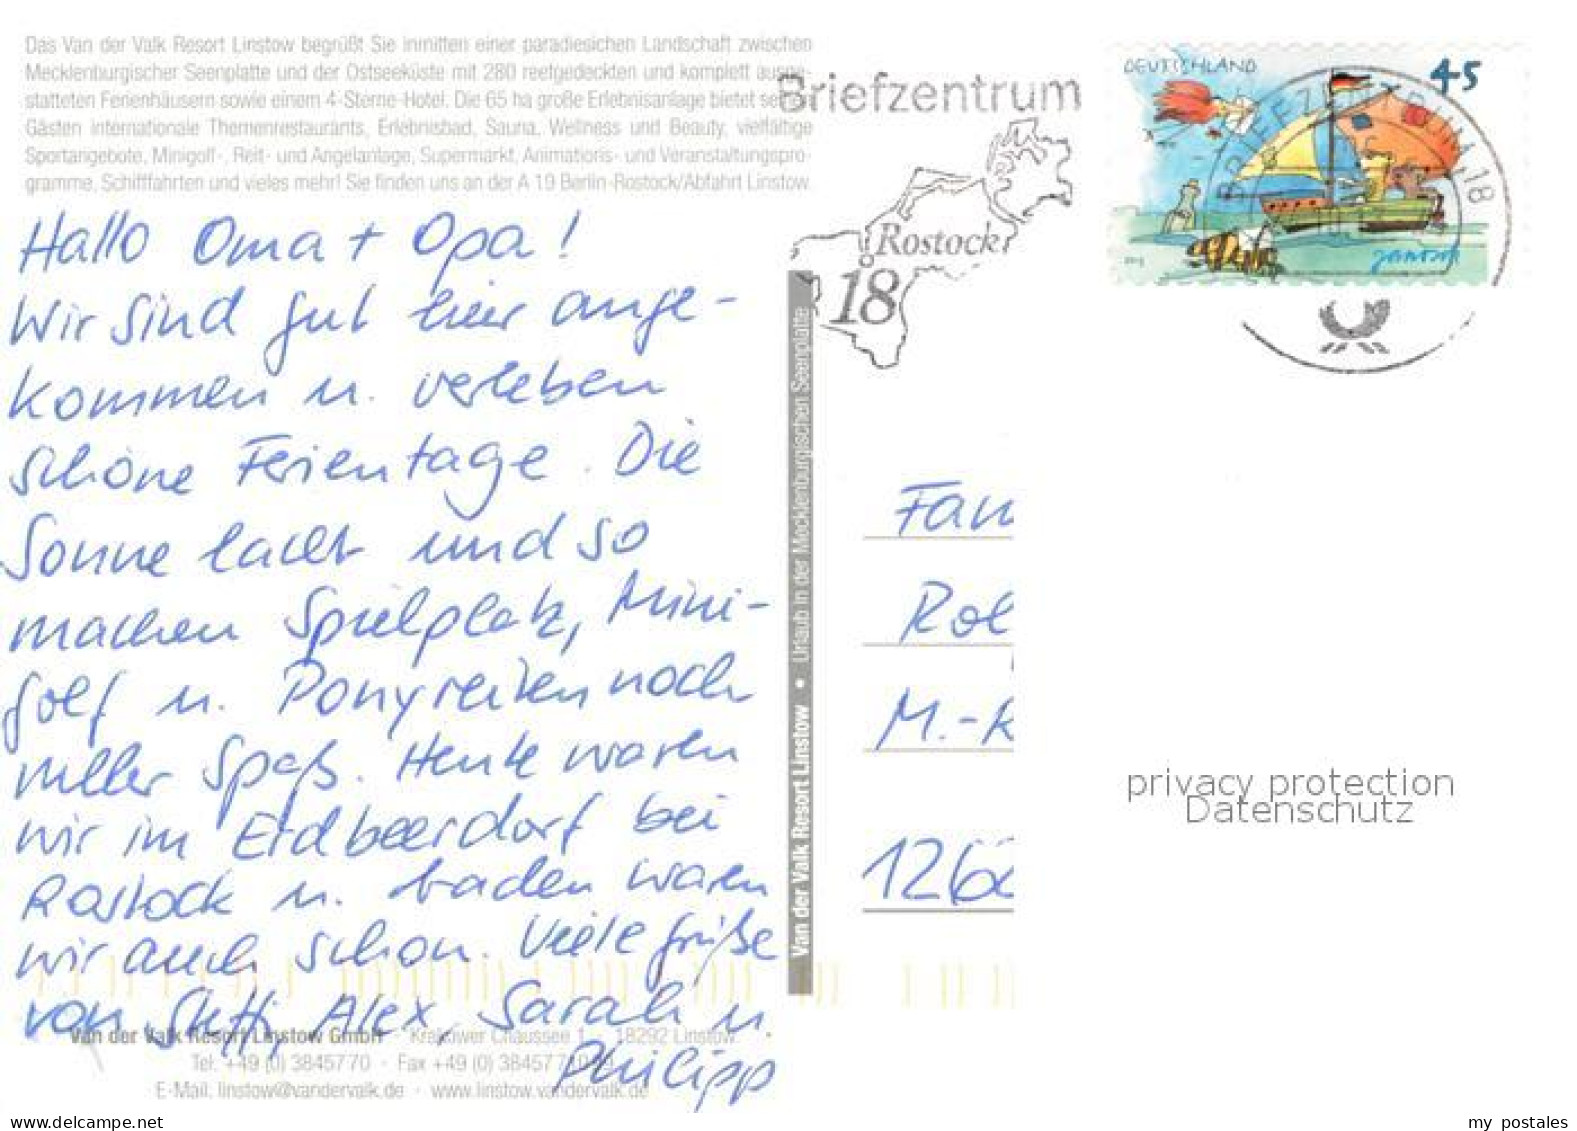 Das Van der Valk Resort Linstow begrüßt Sie inmitten einer paradiesichen Landschaft zwischen
Mecklenburgischer Seenplatte und der Ostseeküste mit 280 reetgedeckten und komplett ausge-
statteten Ferienhäusern sowie einem 4-Sterne-Hotel. Die 65 ha große Erlebnisanlage bietet seinen
Gästen internationale Themenrestaurants, Erlebnisbad, Sauna, Wellness und Beauty, vielfältige
Sportangebote, Minigolf-, Reit- und Angelanlage, Supermarkt, Animations- und Veranstaltungspro-
gramme, Schifffahrten und vieles mehr! Sie finden uns an der A 19 Berlin-Rostock/Abfahrt Linstow.
Hallo Oma + Opa!
Wir sind gut hier ange-
kommen u. verleben
schöne Ferientage. Die
Sonne lacht und so
machen Spielplatz, Mini-
golf u. Ponyreiten noch
meller Spaß. Heute waren
wir im Erdbeerdorf bei
Rostock u. baden waren
wir auch schon. Viele Grüße
von Steffi, Alex Sarah u.
Philipp
Van der Valk Resort Linstow GmbH · Krakower Chaussee 1 · 18292 Linstow
Tel: +49 (0) 3845770 · Fax +49 (0) 38457
E-Mail: linstow@vandervalk.de · www.linstow.vandervalk.de
Van der Valk Resort Linstow • Urlaub in der Mecklenburgischen Seenplatte
Briefzentrum
Rostock
18
DEUTSCHLAND
45
janosch
BRIEFZENTRUM 18
Fam
Rol
M.-K
126
privacy protection
Datenschutz
my postales.com
my postales